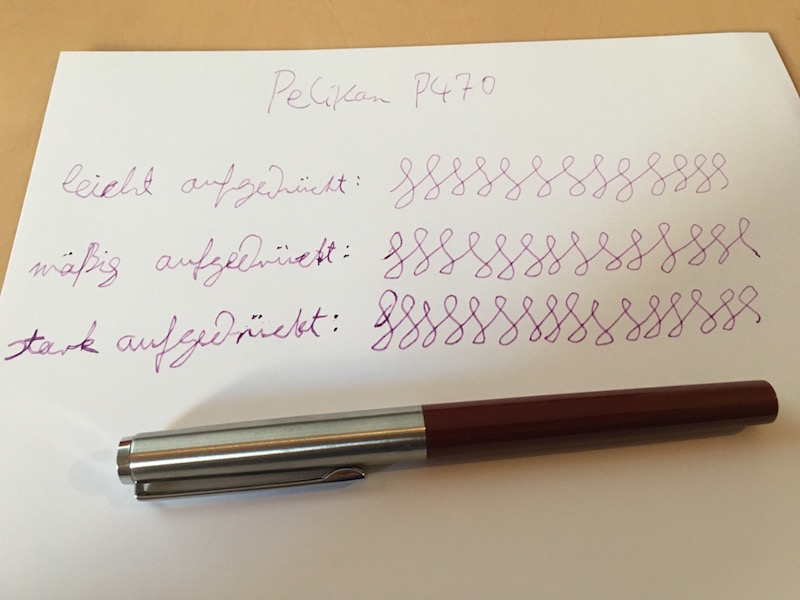 Pelikan P470
leicht aufgedrückt:
mäßig aufgedrückt:
stark aufgedrückt: